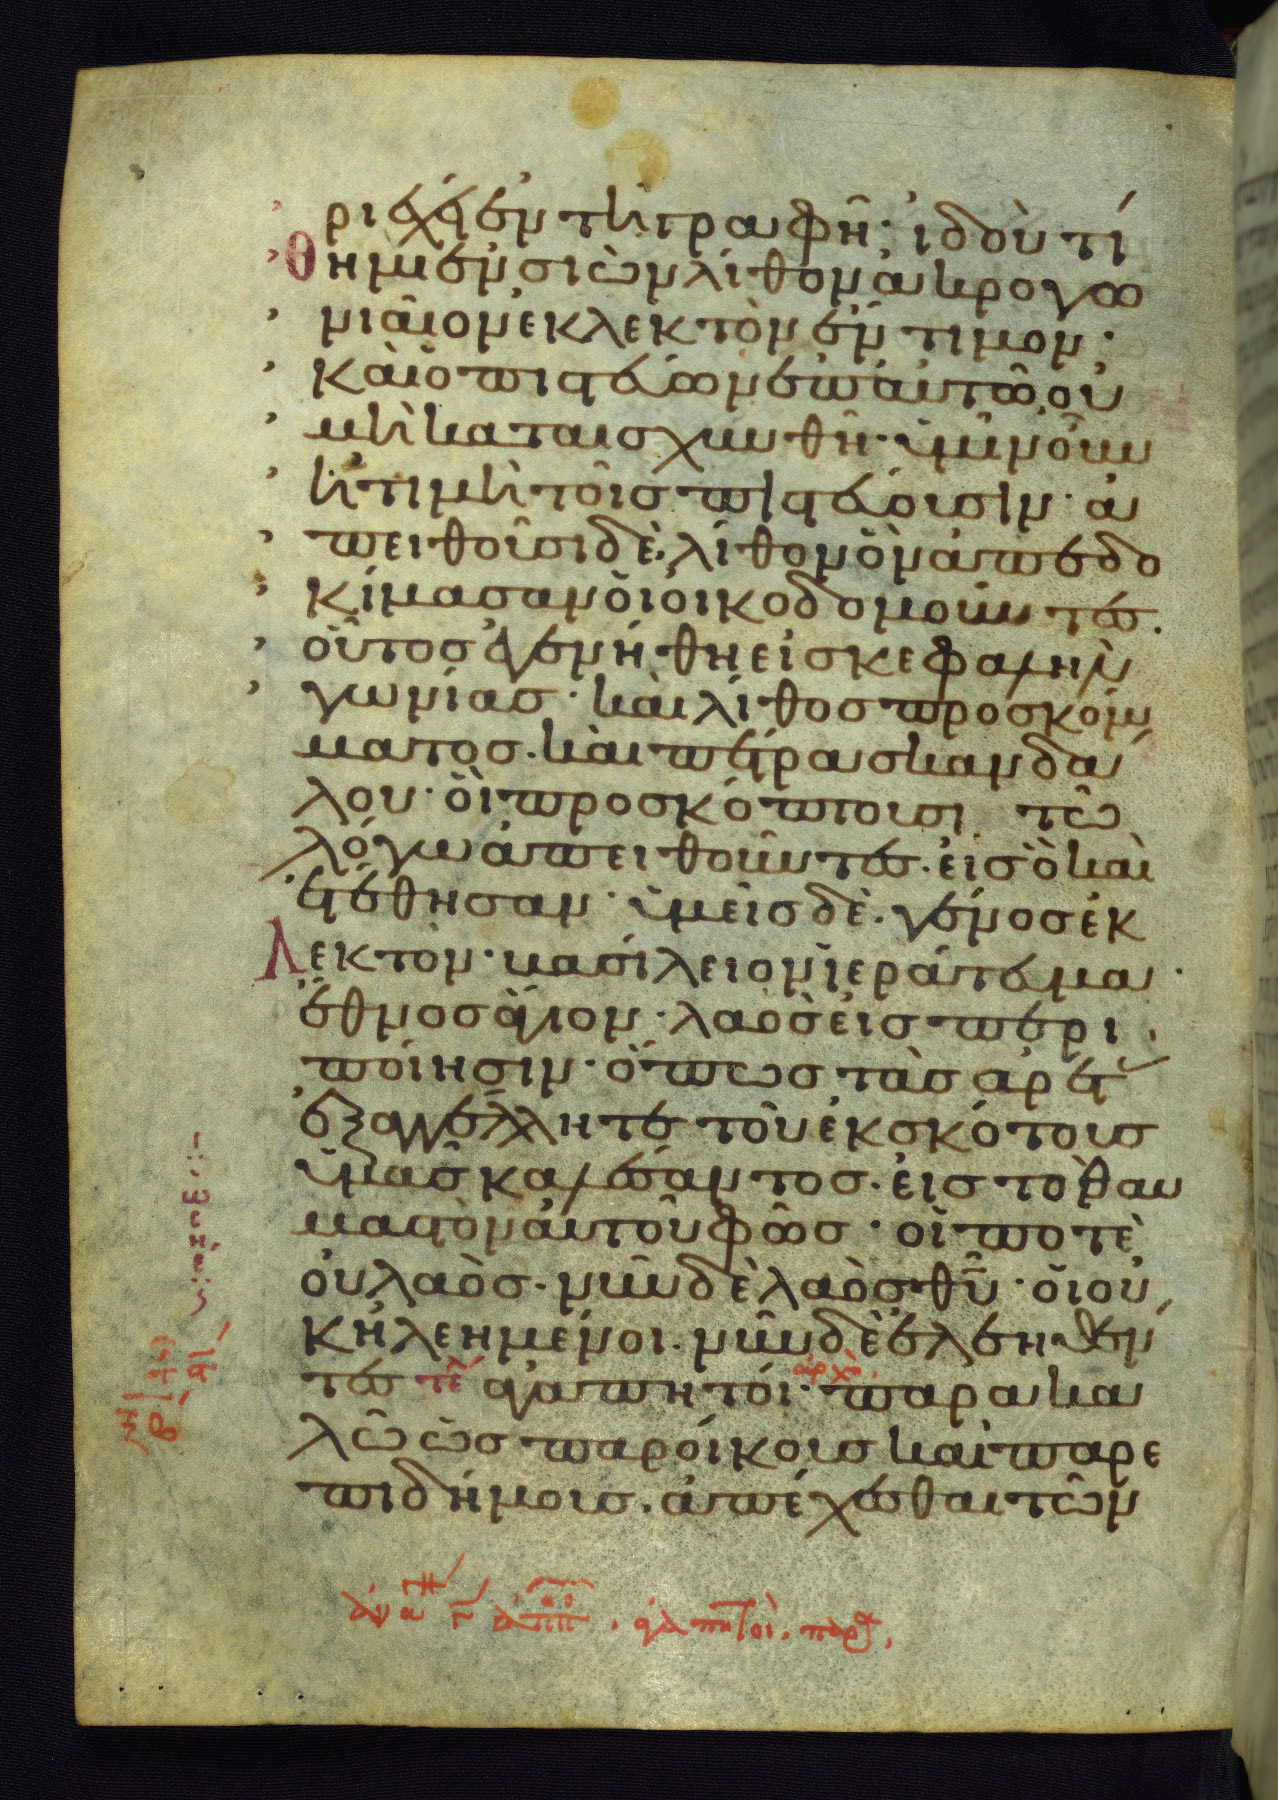 ριέχει ἐν τῆ γραφῆ· ἰδοὺ τί
θημι ἐν σιὼν λίθον ἀκρογω
νιαῖον ἐκλεκτὸν ἔντιμον·
καὶ ὁ πιστεύων ἐπ' αὐτῶ οὐ
μὴ καταισχυνθῆ· ὑμῖν οὖν
ἡ τιμὴ τοῖς πιστεύουσιν· ἀ
πειθοῦσι δὲ, λίθον ὃν ἀπεδο
κίμασαν οἱ οἰκοδομοῦντες.
οὗτος ἐγενήθη εἰς κεφαλὴν
γωνίας· καὶ λίθος προσκόμ
ματος. καὶ πέτρα σκανδά
λου· οἳ προσκόπτουσι τῶ
λόγω ἀπειθοῦντες. εἰς ὃ καὶ
ἐτέθησαν· ὑμεῖς δὲ. γένος ἐκ
λεκτὸν· βασίλειον ἱεράτευμα·
ἔθνος ἅγιον· λαὸς εἰς περι
ποίησιν· ὅπως τὰς ἀρετὰς
ἐξαγγείλητε τοῦ ἐκ σκότους
ὑμᾶς καλέσαντος. εἰς τὸ θαυ
μαστὸν αὐτοῦ φῶς· οἵ ποτὲ
οὐ λαὸς. νῦν δὲ λαὸς θῦ· οἱ οὐ
κ ἠλεημένοι. νῦν δὲ ἐλεηθέν
τες τελ ἀγαπητοί· ἀρχ παρακα
λῶ ὡς παροίκους καὶ παρε
πιδήμους. ἀπέχεσθαι τῶν